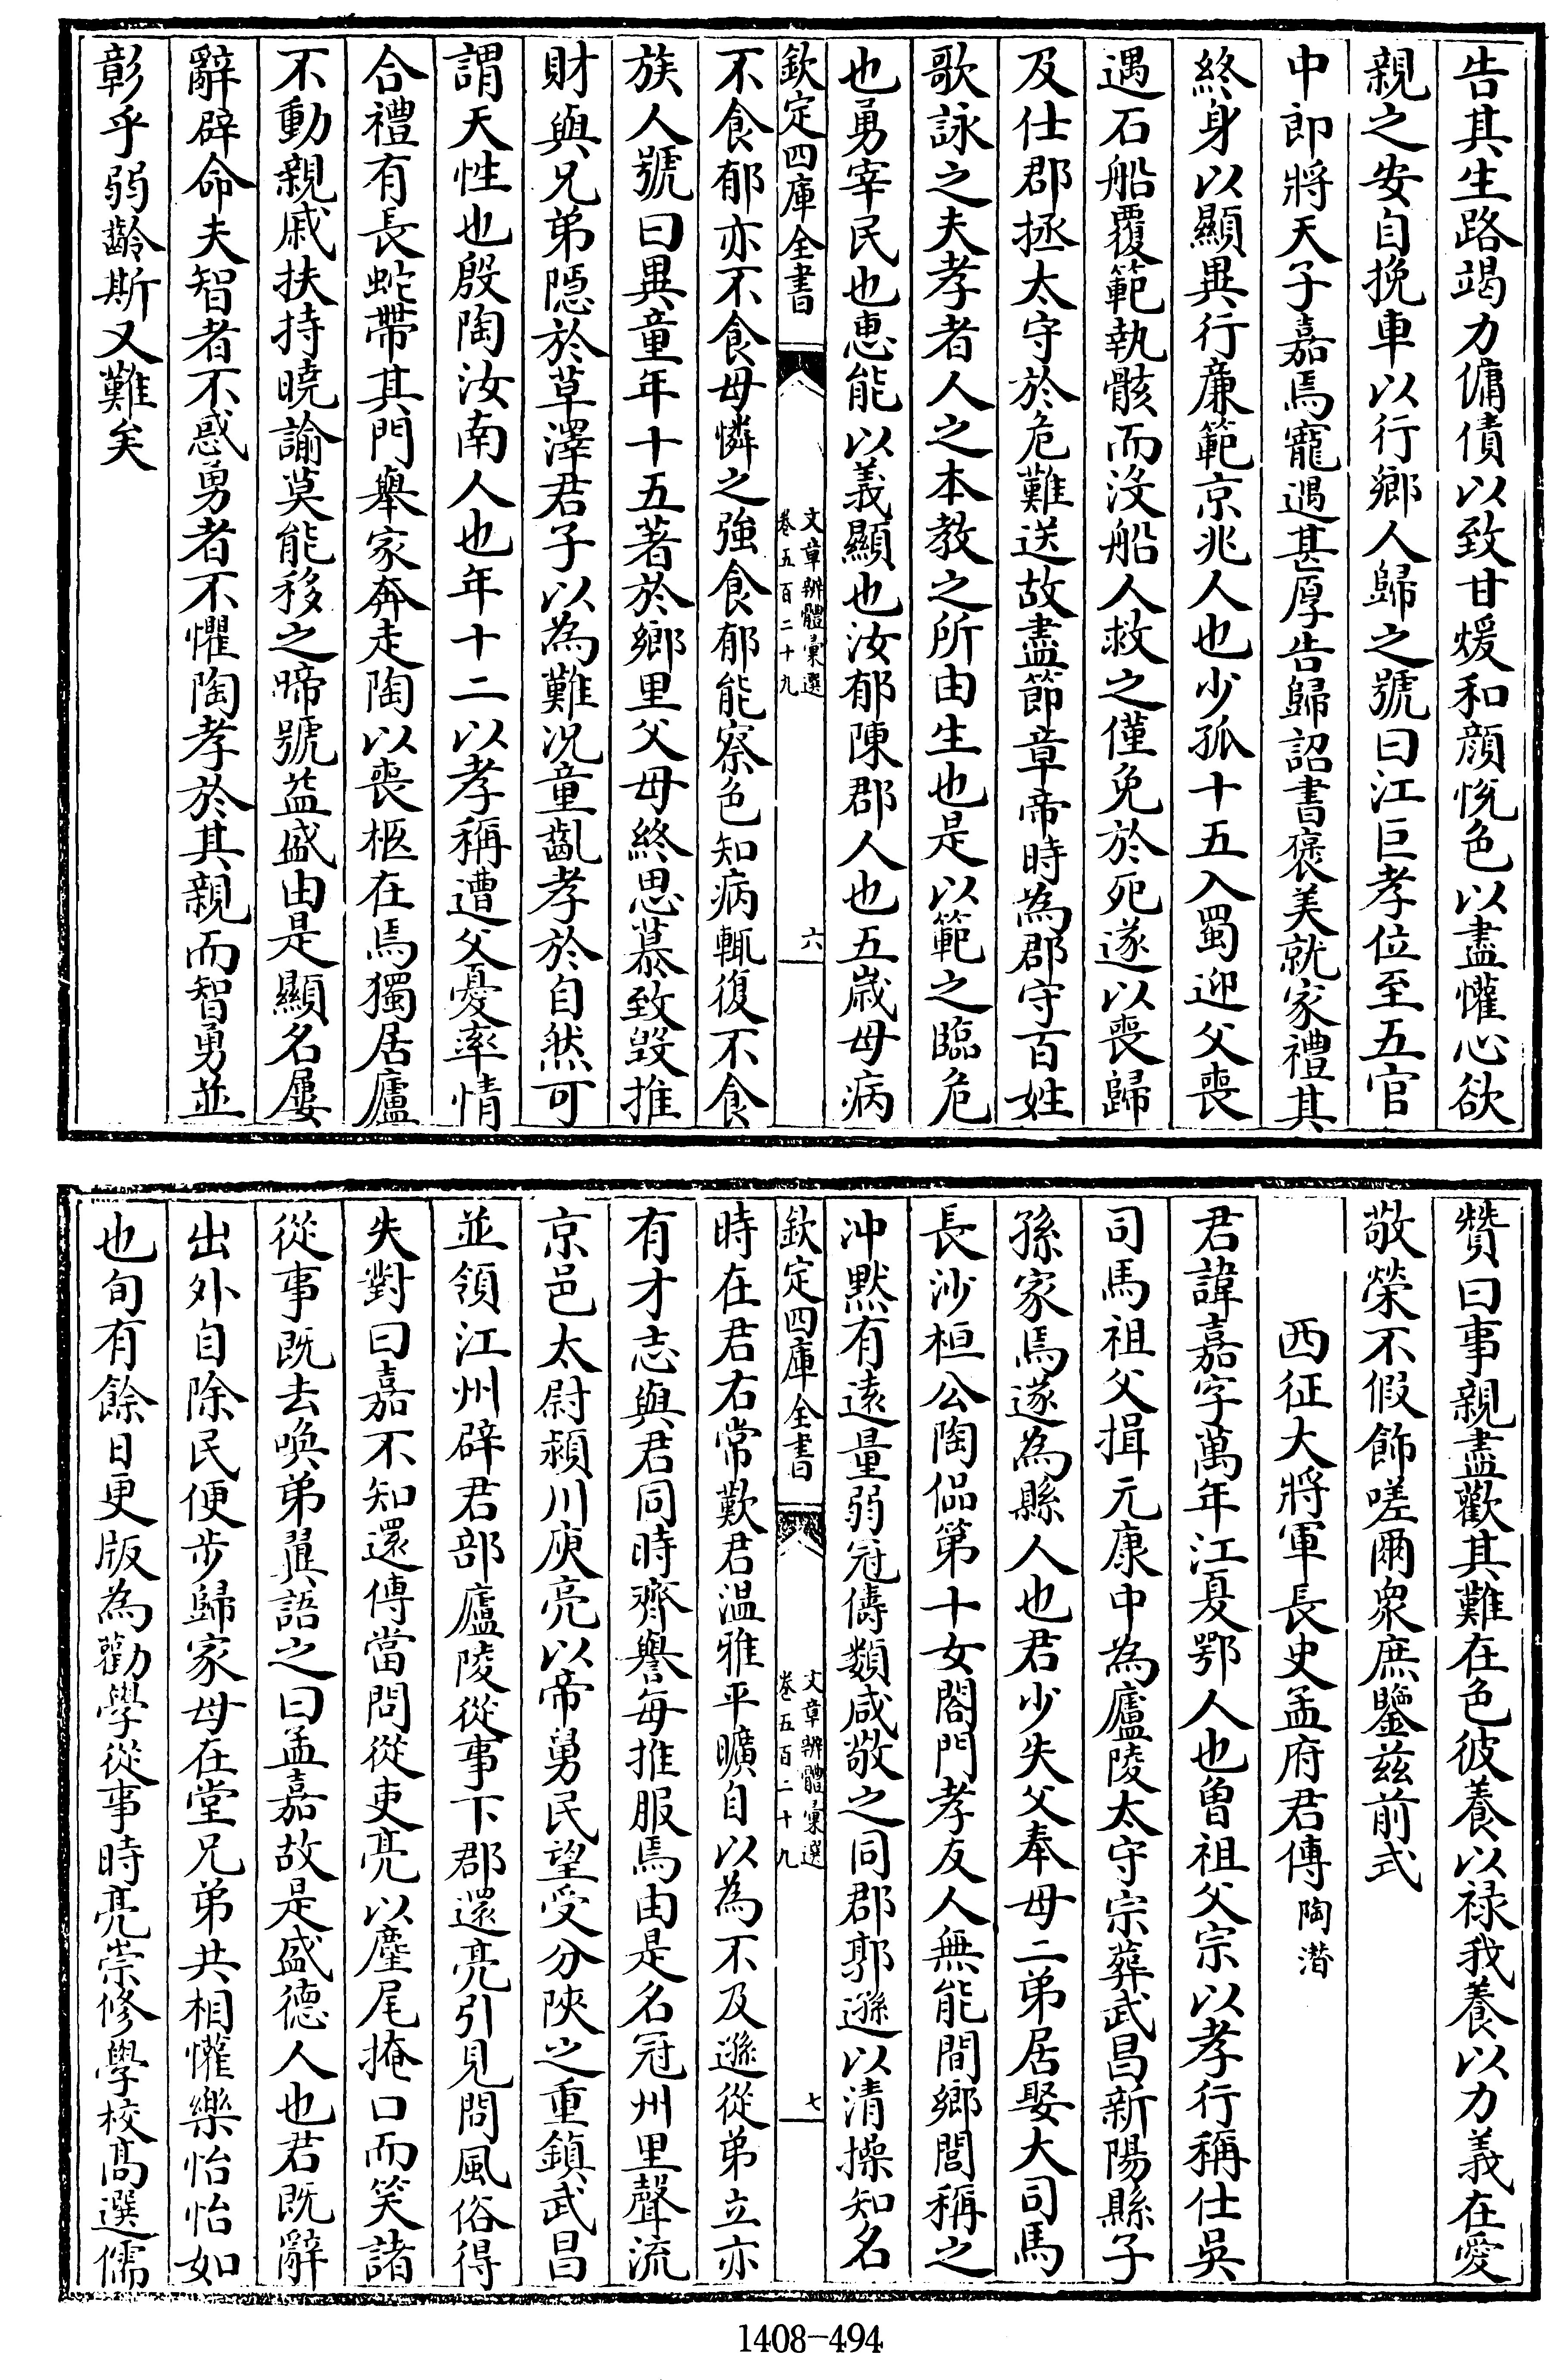 告其生路竭力傭債以致甘煖和顔悅色以盡懽心欲
親之安自挽車以行鄉人歸之號曰江巨孝位至五官
中郎將天子嘉焉寵遇甚厚告歸詔書褒美就家禮其
終身以顯異行廉範京兆人也少孤十五入蜀迎父喪
遇石船覆範執骸而沒船人救之僅免於死遂以喪歸
及仕郡拯太守於危難送故盡節章帝時為郡守百姓
歌詠之夫孝者人之本教之所由生也是以範之臨危
也勇宰民也惠能以義顯也汝郁陳郡人也五歲母病
欽定四庫全書
文章辨體彙選
卷五百二十九
六
不食郁亦不食母憐之強食郁能察色知病輒復不食
族人號曰異童年十五著於鄉里父母終思慕致毀推
財與兄弟隱於草澤君子以為難況童齓孝於自然可
謂天性也殷陶汝南人也年十二以孝稱遭父憂率情
合禮有長蛇帶其門舉家奔走陶以喪柩在焉獨居廬
不動親戚扶持曉諭莫能移之啼號益盛由是顯名屢
辭辟命夫智者不惑勇者不懼陶孝於其親而智勇並
彰乎弱齡斯又難矣
贊曰事親盡歡其難在色彼養以祿我養以力義在愛
敬榮不假飾嗟爾衆庶鑒兹前式
西征大將軍長史孟府君傳 陶潛
君諱嘉字萬年江夏鄂人也曾祖父宗以孝行稱仕吳
司馬祖父揖元康中為廬陵太守宗葬武昌新陽縣子
孫家焉遂為縣人也君少失父奉母二弟居娶大司馬
長沙桓公陶侃第十女閤門孝友人無能間鄉閭稱之
沖默有遠量弱冠儔類咸敬之同郡郭遜以清操知名
欽定四庫全書
文章辨體彙選
卷五百二十九
七
時在君右常歎君温雅平曠自以為不及遜從弟立亦
有才志與君同時齊譽每推服焉由是名冠州里聲流
京邑太尉潁川庾亮以帝舅民望受分陜之重鎮武昌
並領江州辟君部廬陵從事下郡還亮引見問風俗得
失對曰嘉不知還傳當問從吏亮以麈尾掩口而笑諸
從事既去喚弟翼語之曰孟嘉故是盛德人也君既辭
出外自除民便步歸家母在堂兄弟共相懽樂怡怡如
也旬有餘日更版為勸學從事時亮崇修學校高選儒
1408-494